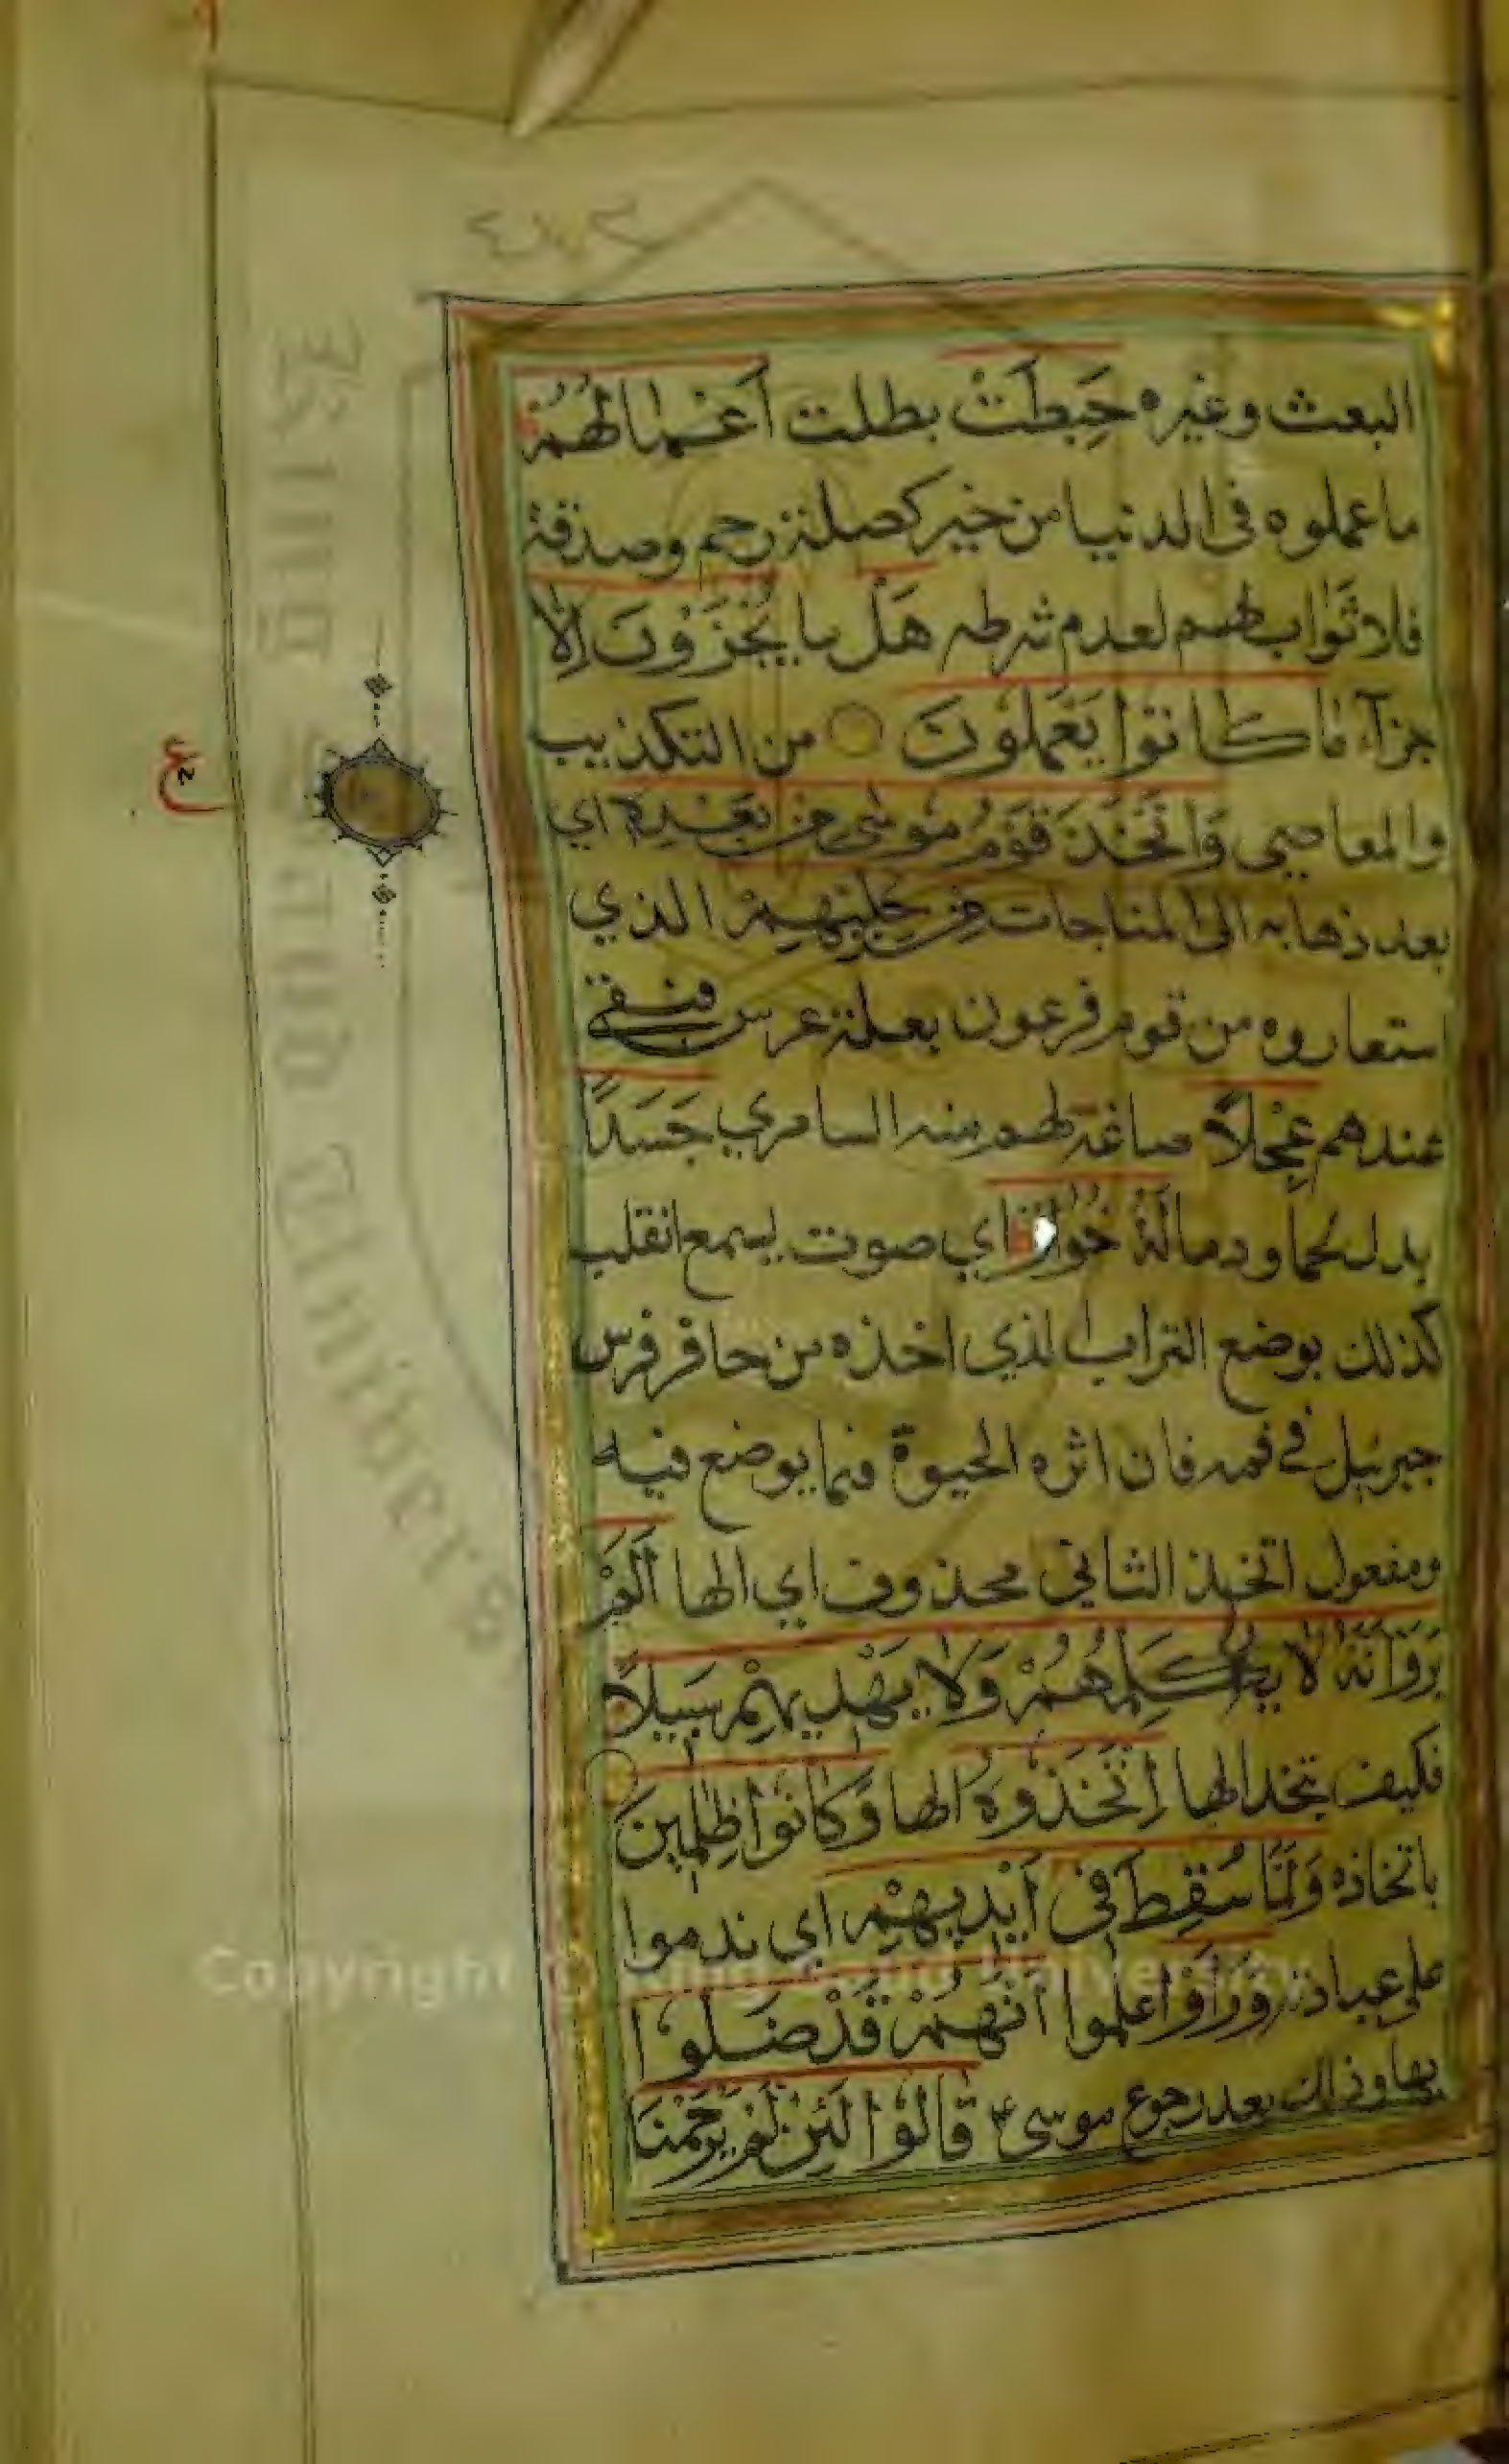 ٤٧٢
البعث وغيره حَبِطَتْ بطلت أَعْمَالُهُمْ
ما عملوه فى الدنيا من خير كصلة رحم وصدقة
فلا ثَوَاب لهم لعدم شرطه هَلْ ما يُجْزَوْنَ إِلَّا
جزآء مَا كَانُوا يَعْمَلُونَ من التكذيب
والمعاصي وَاتَّخَذَ قَوْمُ مُوسٰى مِنْ بَعْدِهِ اي
بعد ذهابه الى المناجات مِنْ حُلِيِّهِمْ الذي
استعاروه من قوم فرعون بعلة عرس فبقي
عندهم عِجْلًا صاغة لهم منه السامري جَسَدًا
بدل لحما ودما لَهُ خُوَارٌ اي صوت يسمع انقلب
كذلك بوضع التراب الذي اخذه من حافر فرس
جبرئيل في فمه فان اثره الحيوة فيما يوضع فيه
ومفعول اتخذ الثاني محذوف اي الها أَلَمْ
يَرَوْا أَنَّهُ لَا يُكَلِّمُهُمْ وَلَا يَهْدِيهِمْ سَبِيلًا
فكيف يتخذ الها اِتَّخَذُوهُ الها وَكَانُوا ظٰلِمِينَ
باتخاذه وَلَمَّا سُقِطَ فِى أَيْدِيهِمْ اي ندموا
على عبادته وَرَأَوْا علموا أَنَّهُمْ قَدْ ضَلُّوا
بها وذلك بعد رجوع موسى ع قَالُوا لَئِنْ لَمْ يَرْحَمْنَا
ع
King Saud University
Copyright © King Saud University